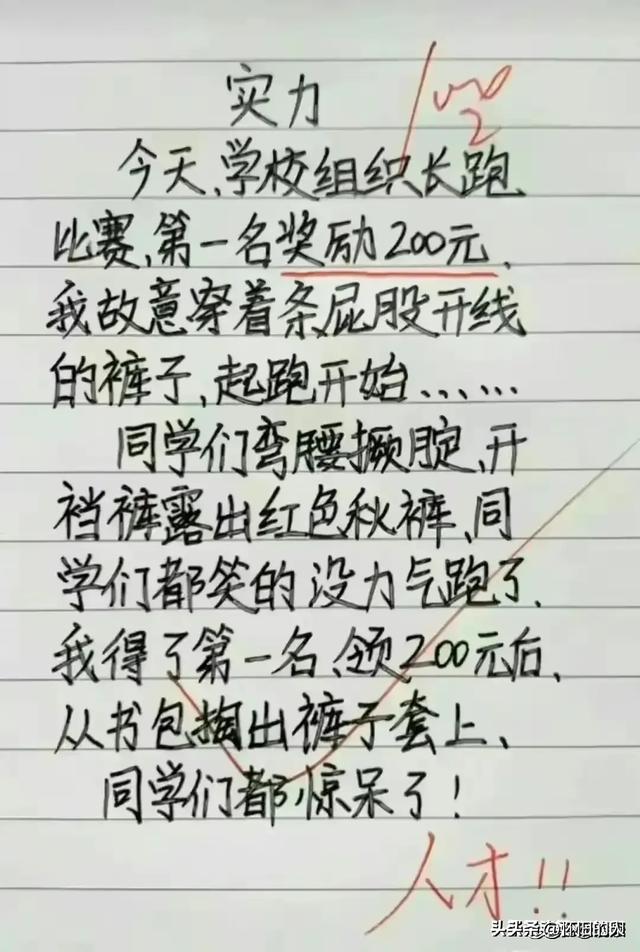 实力
今天,学校组织长跑
比赛,第一名奖励200元,
我故意穿着条屁股开线
的裤子,起跑开始……
同学们弯腰撅腚,开
裆裤露出红色秋裤,同
学们都笑的没力气跑了,
我得了第一名,领200元后,
从书包掏出裤子套上,
同学们都惊呆了!
人才!!